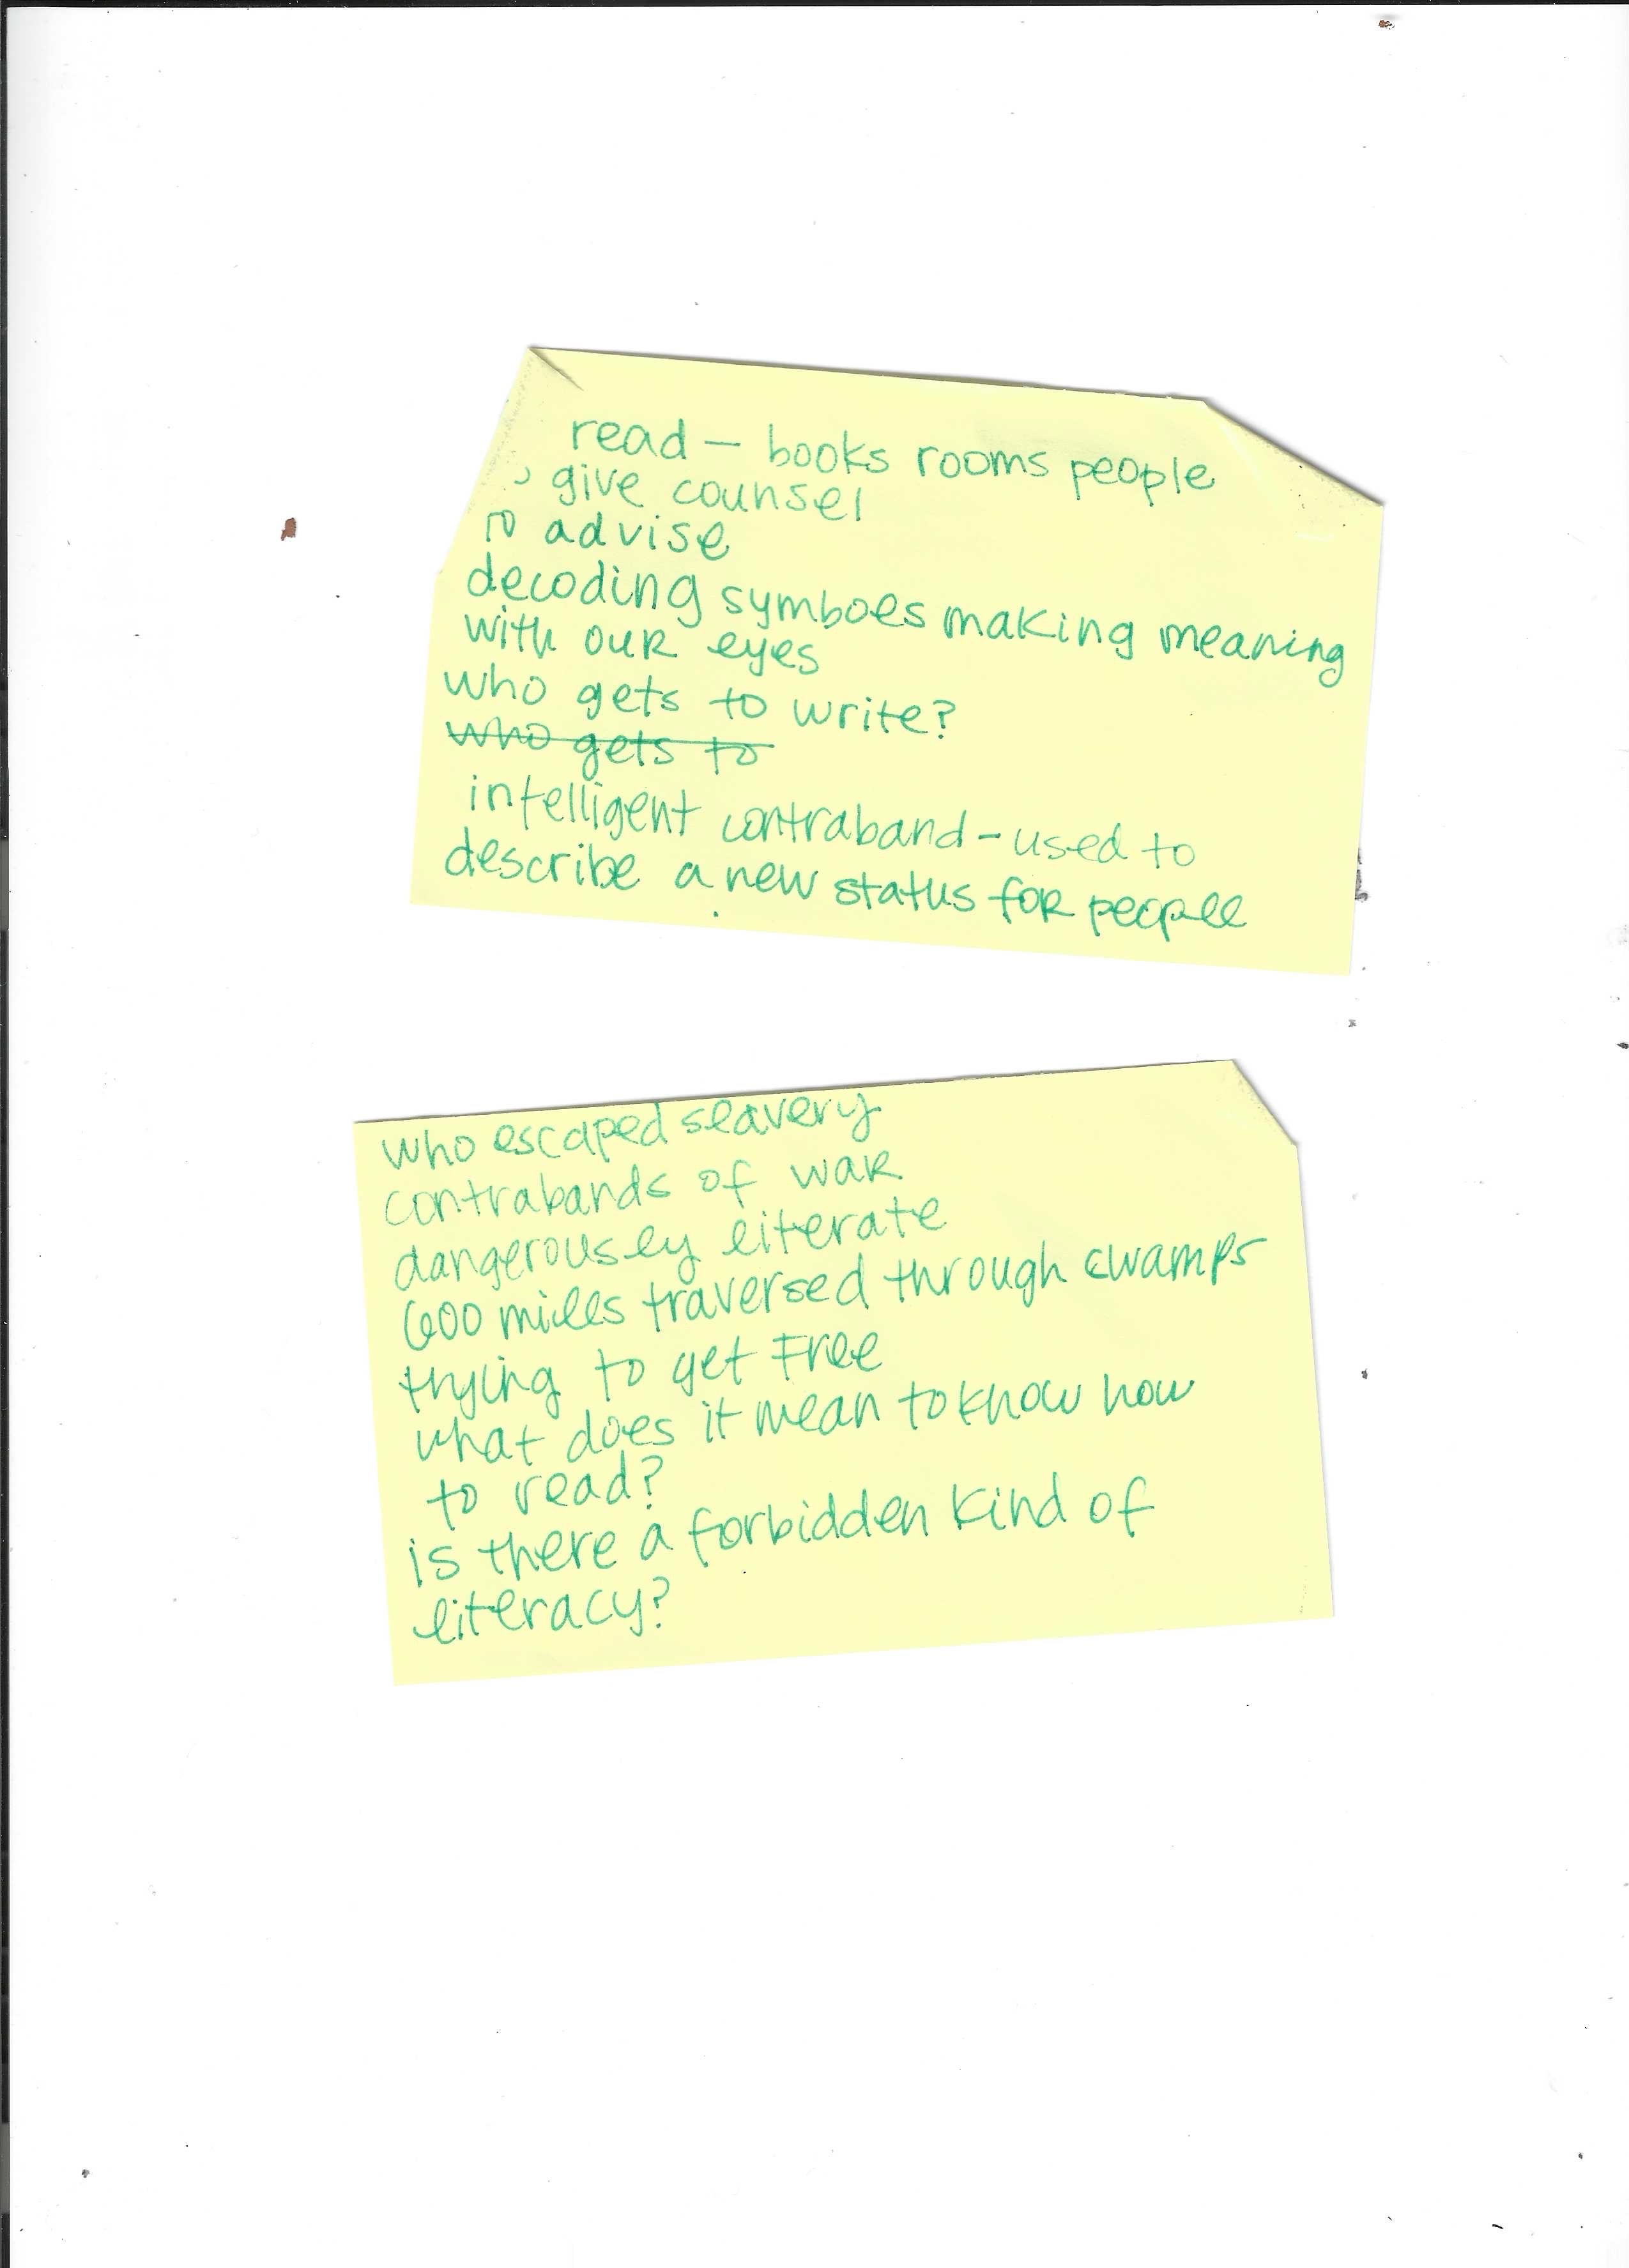 read — books rooms people
give counsel
to advise
decoding symboles making meaning
with our eyes
who gets to write?
who gets to
intelligent contraband - used to
describe a new status for people
who escaped slavery
contrabands of war
dangerously literate
600 miles traversed through swamps
trying to get free
what does it mean to know how
to read?
is there a forbidden kind of
literacy?